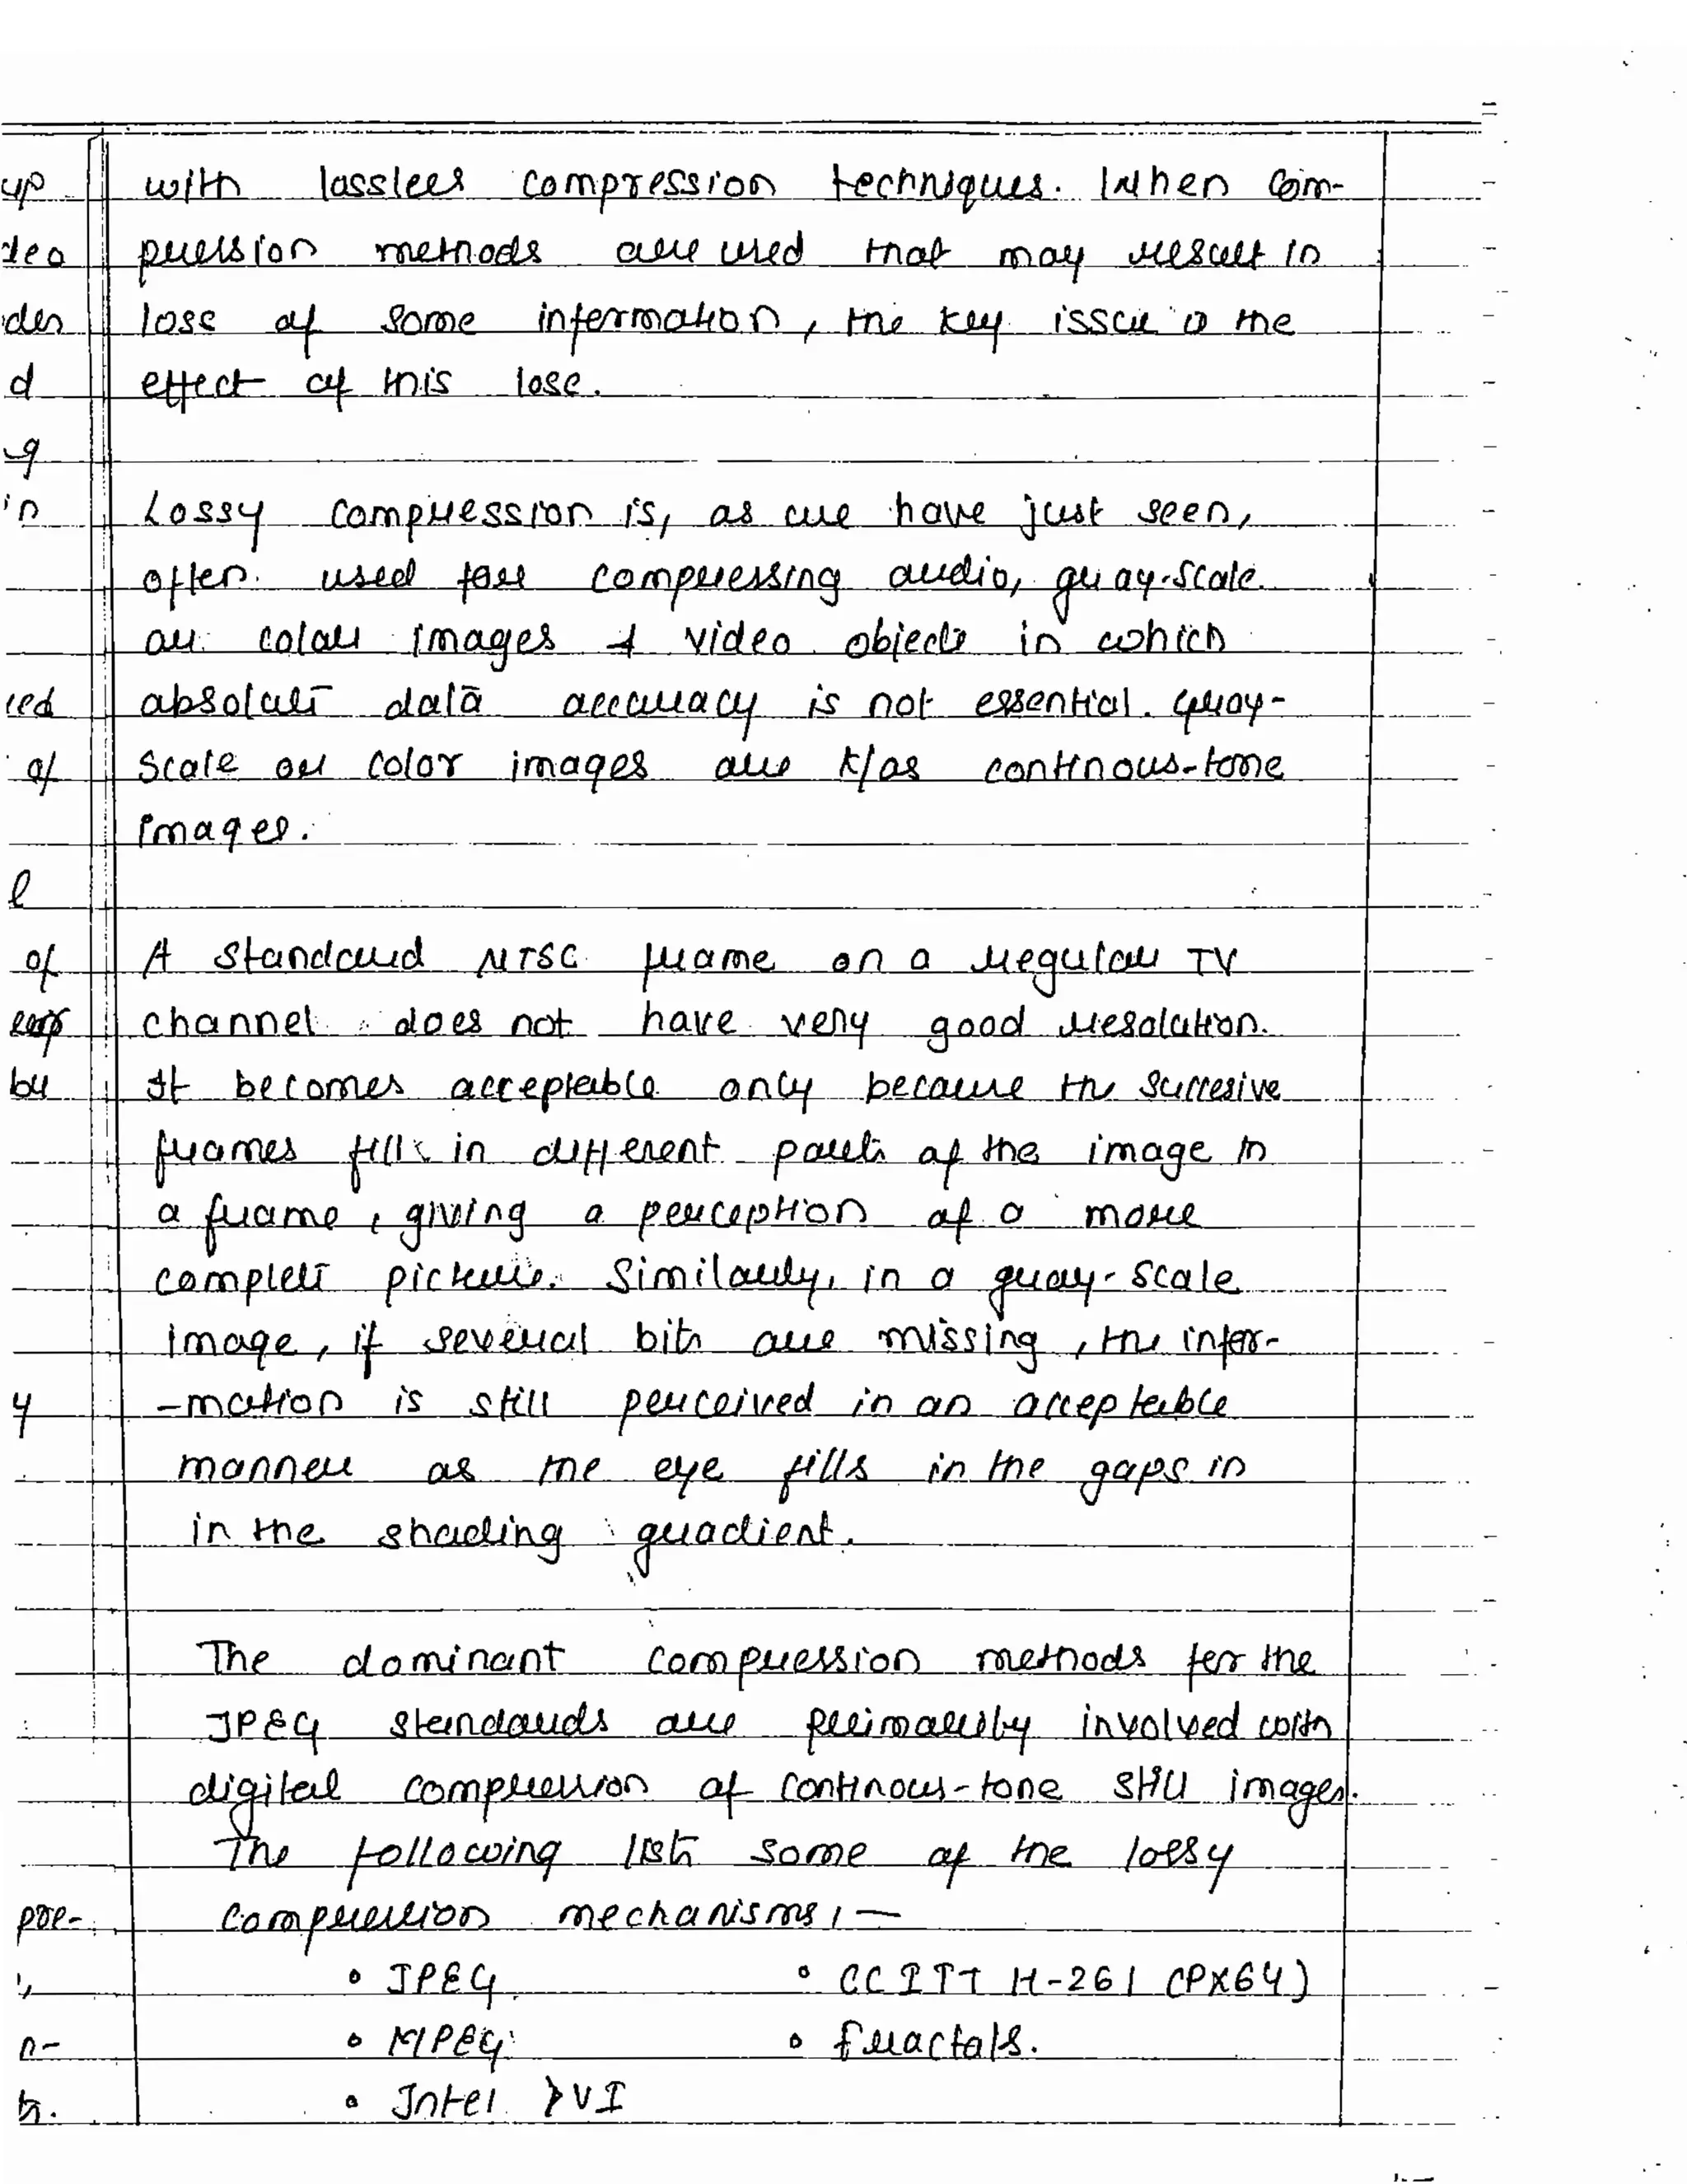 with lasslees compression techniques. When com-
pression methods are used that may result in
loss of some information, the key issue is the
effect of this lose.
Lossy compression is, as we have just seen,
often used for compressing audio, gray-scale
or color images & video objects in which
absolute data accuracy is not essential. Gray-
scale or color images are k/as continous-tone
images.
A standard NTSC frame on a regular TV
channel does not have very good resolution.
It becomes acceptable only because the succesive
frames fill in different parts of the image in
a frame, giving a perception of a more
complete picture. Similarly, in a gray-scale
image, if several bits are missing, the infor-
-mation is still perceived in an acceptable
manner as the eye fills in the gaps in
in the shading gradient.
The dominant compression methods for the
JPEG standards are primarily involved with
digital compression of continous-tone still images.
The following lists some of the lossy
compression mechanisms :—
• JPEG • CCITT H-261 (PX64)
• MPEG • fractals.
• Intel DVI
up
deo
der
d
g
in
red
of
l
of
by
y
n-